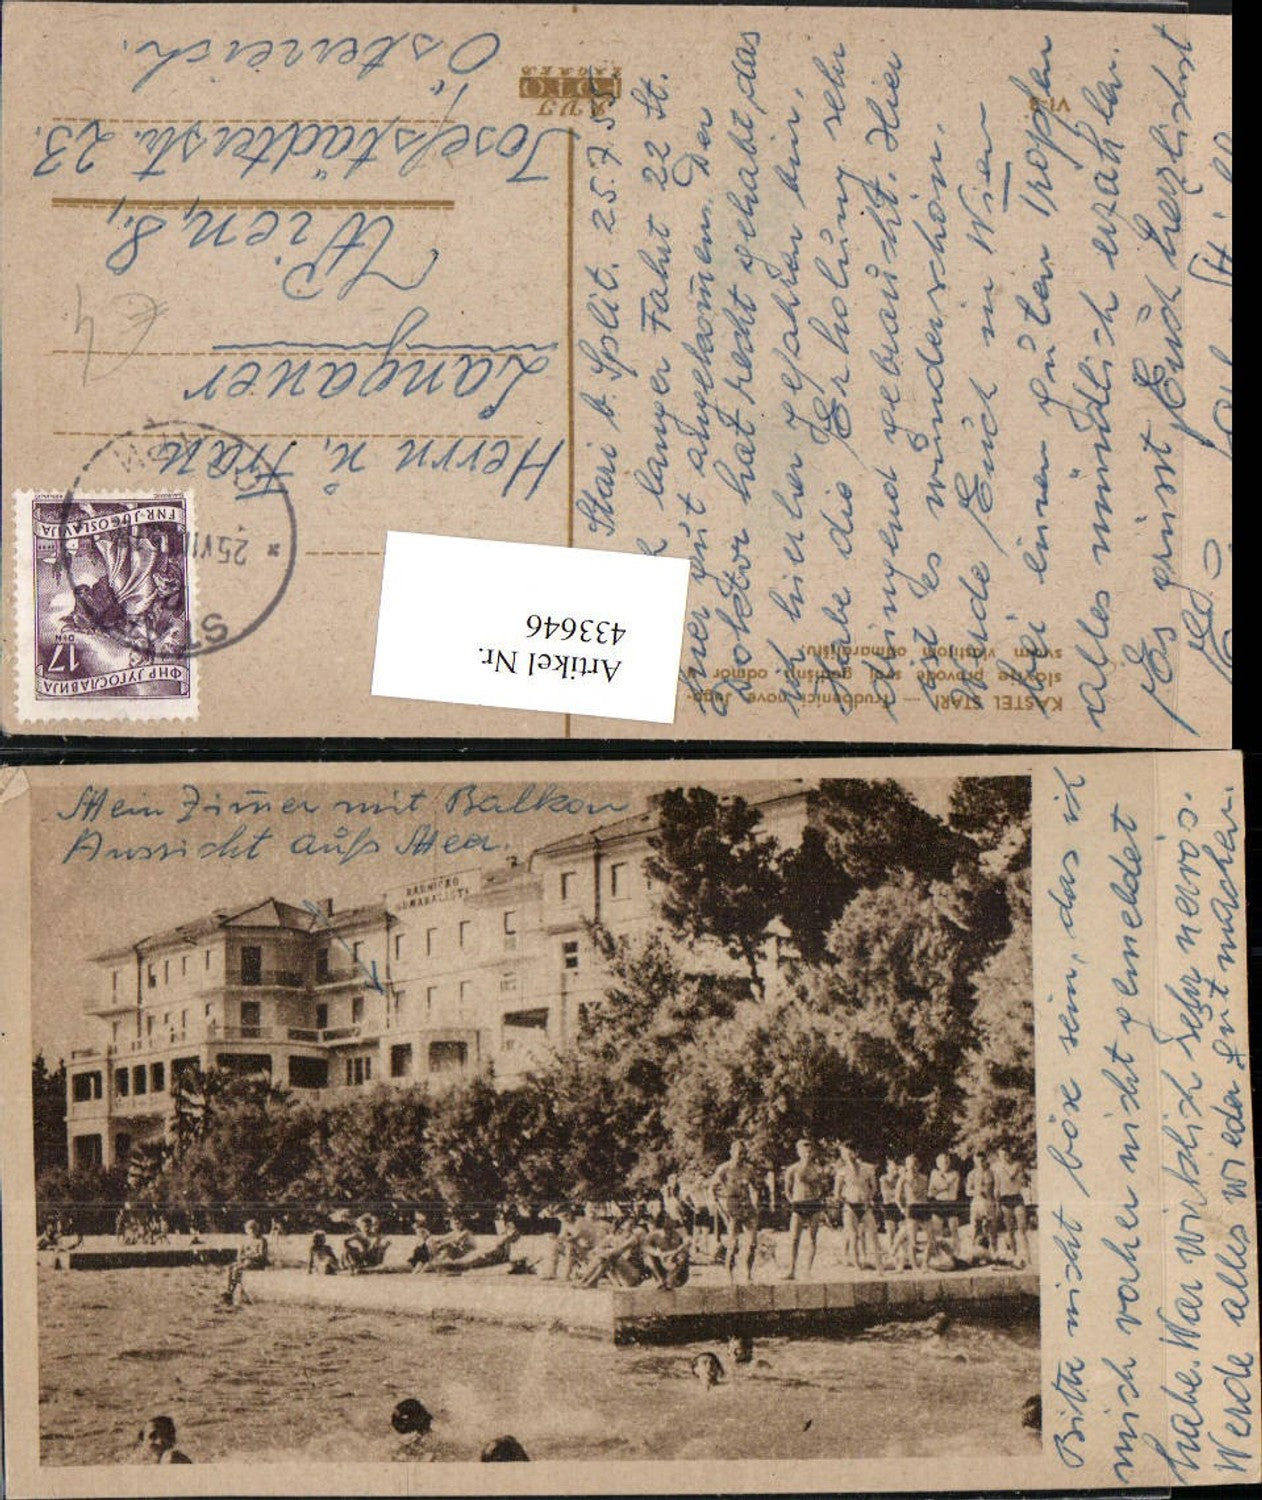 KAŠTEL STARI — Trudbenici nove Jugo-
slavije provode svoj godišnji odmor u
svom vlastitom odmaralištu
VI-8
FOTO
ZAGREB
Stari b. Split. 25.7.
langer Fahrt 22 St.
gut angekommen. Der
Doktor hat recht gehabt, das
ich hierher gefahren bin,
habe die Erholung sehr
dringend gebraucht. Hier
ist es wunderschön.
Werde Euch in Wien
bei einem guten Tropfen
alles mündlich erzählen.
Es grüsst Euch herzlichst
ФНР ЈУГОСЛАВИЈА
17
DIN
FNR JUGOSLAVIJA
25 VII
Herrn u. Frau
Langauer
Wien, 8.,
Josefstädterstr. 23.
Österreich.
€4
Artikel Nr.
433646
Mein Zimmer mit Balkon
Aussicht aufs Meer.
RADNIČKO
ODMARALIŠTE
Bitte nicht böse sein, das ich
mich vorher nicht gemeldet
habe. War wirklich sehr nervös.
Werde alles wieder gut machen.